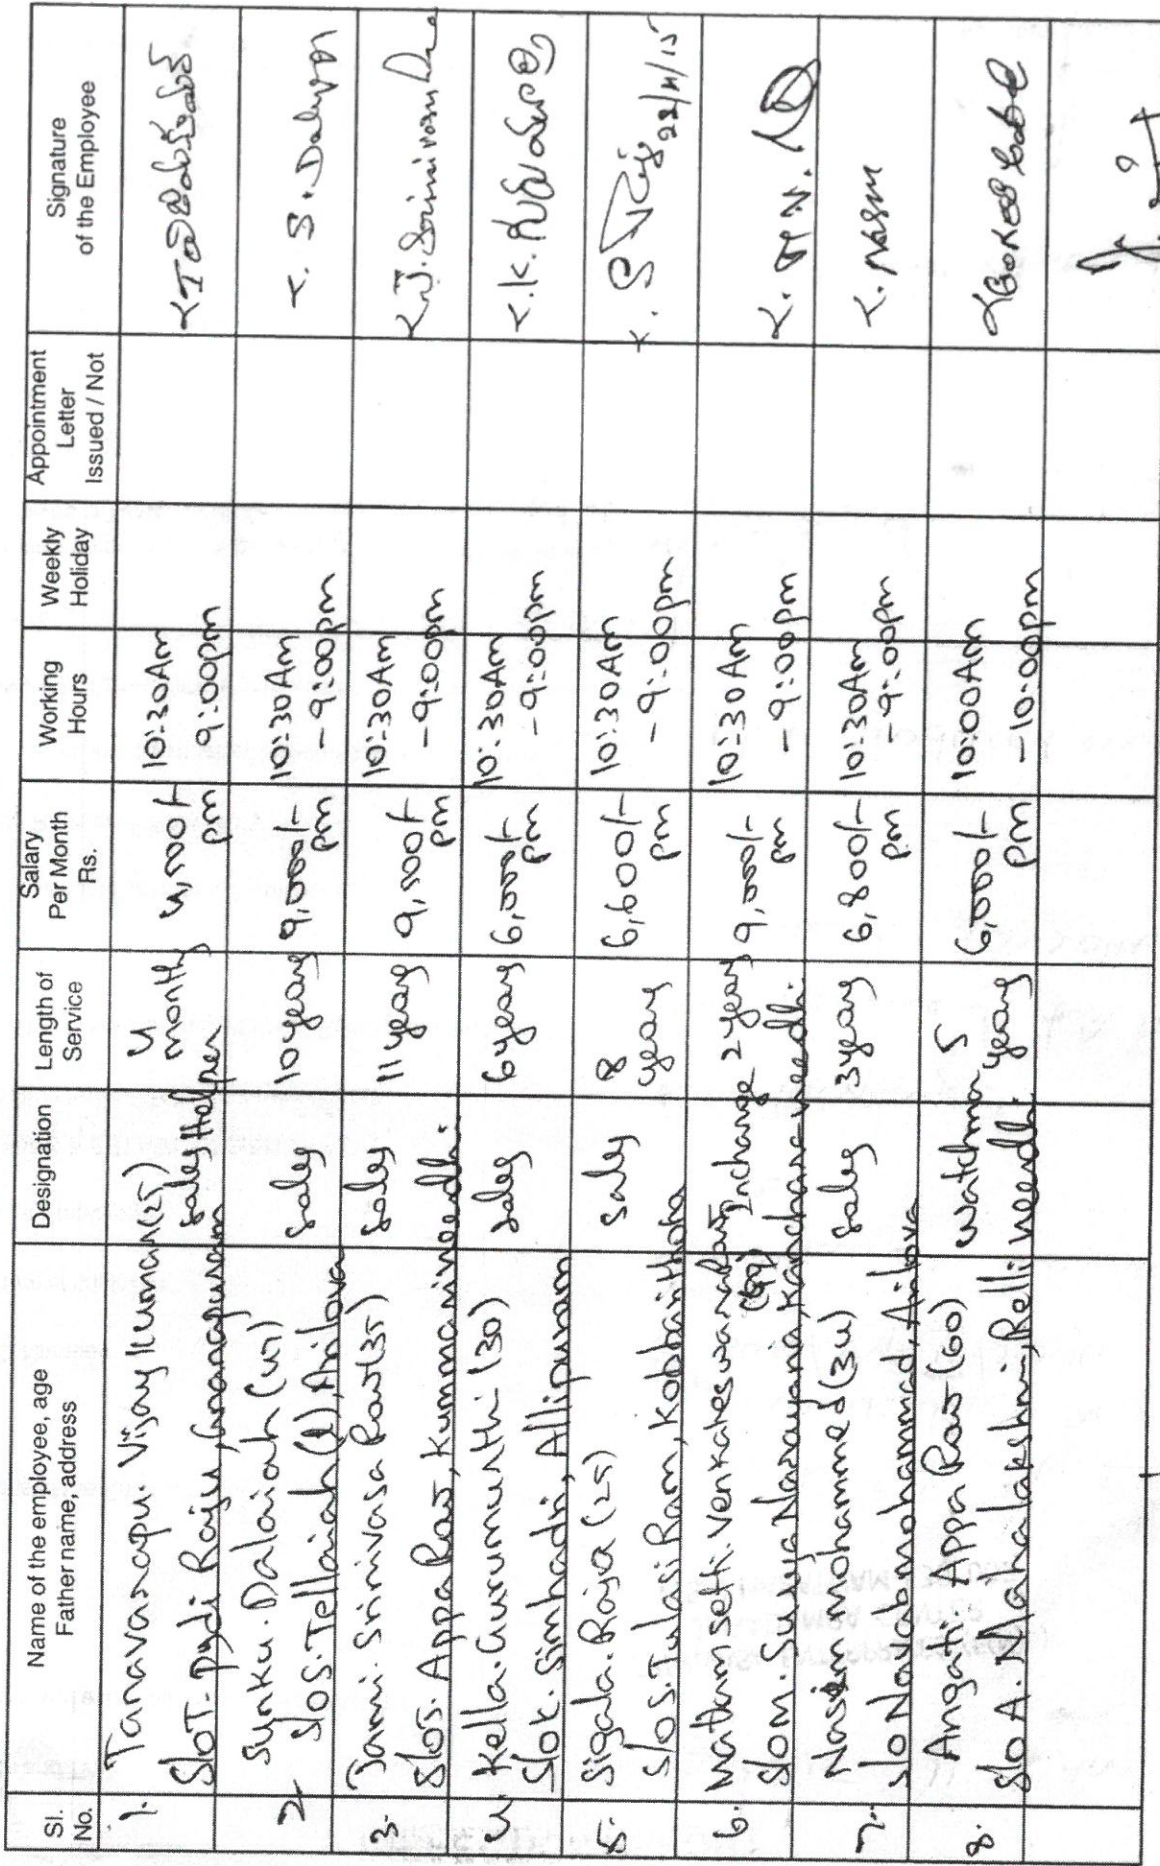 Sl. No.
Name of the employee, age Father name, address
Designation
Length of Service
Salary Per Month Rs.
Working Hours
Weekly Holiday
Appointment Letter Issued / Not
Signature of the Employee
1. Tanavarapu. Vijay Kumar (25)
S/o T. Pydi Raju, Gnanapuram
Sales Helper
4 months
4,500/- pm
10:30 Am
9:00pm
2. Sunku. Dalaiah (45)
S/o S. Tellaiah (l), Arilova
Sales
10 years
9,000/- pm
10:30 Am
- 9:00pm
3. Jami. Srinivasa Rao (35)
S/o J. Appa Rao, Kummari veedhi.
Sales
11 years
9,500/-
10:30 Am
- 9:00pm
J. Srinivasa Rao
4. Kella. Gurumurthi (30)
S/o K. Simhadri, Allipuram
Sales
6 years
6,000/- pm
10:30 Am
- 9:00pm
5. Sigala. Raja (25)
S/o S. Tulasi Ram, Kobbarithota
Sales
8 years
6,600/- pm
10:30 Am
- 9:00pm
6. Matamsetti. Venkateswara Rao
S/o M. Surya Narayana, Kanchara veedhi.
Incharge
2 years
9,000/- pm
10:30 Am
- 9:00pm
7. Nasim mohammed (34)
S/o Nabab mohammad, Arilova
Sales
3 years
6,800/- pm
10:30 Am
- 9:00pm
8. Angati. Appa Rao (60)
S/o A. Mahalakshmi, Relli veedhi.
Watchman
5 years
6,000/- pm
10:00 Am
- 10:00pm